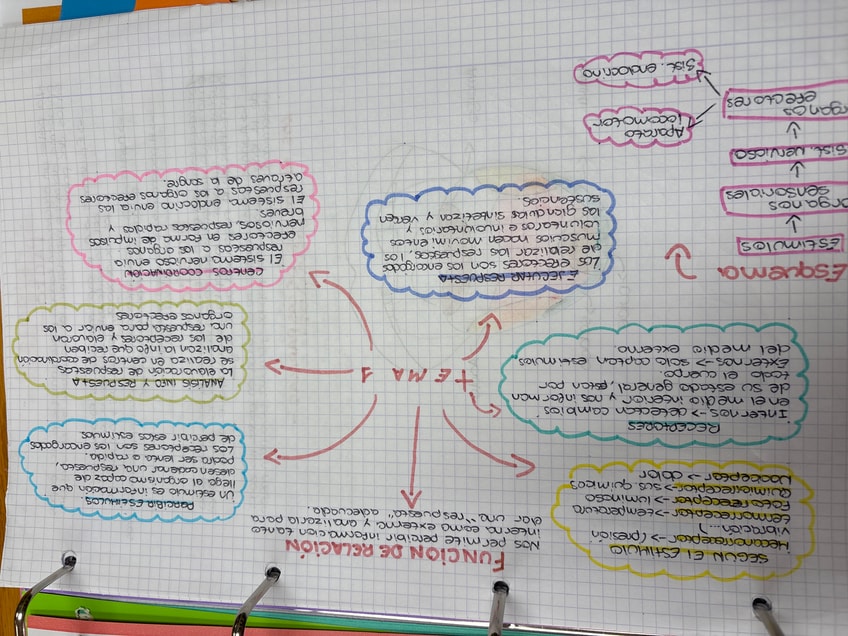 FUNCION DE RELACIÓN
Nos permite percibir informacion tanto
interna como externa y analizarla para
dar una "respuesta" adecuada.
SEGÚN El ESTIMULO
Mecanoreceptor -> (presión
vibración...)
termorreceptor -> temperatura
Fotorreceptor -> luminoso
Quimiorreceptor -> sus quimicos
Nocioceptor -> dolor
PERCIBIR ESTIMULOS
Un estimulo es informacion que
llega al organismo capaz de
desencadenar una respuesta,
podra ser lenta o rapida.
Los receptores son los encargados
de percibir estos estimulos
TEMA 1
RECEPTORES
Internos -> detectan cambios
en el medio interior y nos informan
de su estado general, estan por
todo el cuerpo
Externos -> solo captan estimulos
del medio externo
ANALISIS INFO Y RESPUESTA
La elaboración de respuestas
se realiza en centros de coordinacion
analizan la info que reciben
de los receptores y elaboran
una respuesta para enviar a los
organos efectores
EJECUTAR RESPUESTA
Los efectores son los encargados
de realizar las respuestas, los
musculos hacen movimientos
voluntarios e involuntarios y
las glandulas sintetizan y vierten
sustancias
CENTROS COORDINACIÓN
El sistema nervioso envia
respuestas a los organos
efectores en forma de impulsos
nerviosos, respuestas rapidas y
breves
El sistema endocrino envia las
respuestas a los organos efectores
a traves de la sangre
Esquema
Estimulos
organos
sensoriales
Sist. nervioso
organos
efectores
Aparato
locomotor
Sist. endocrino